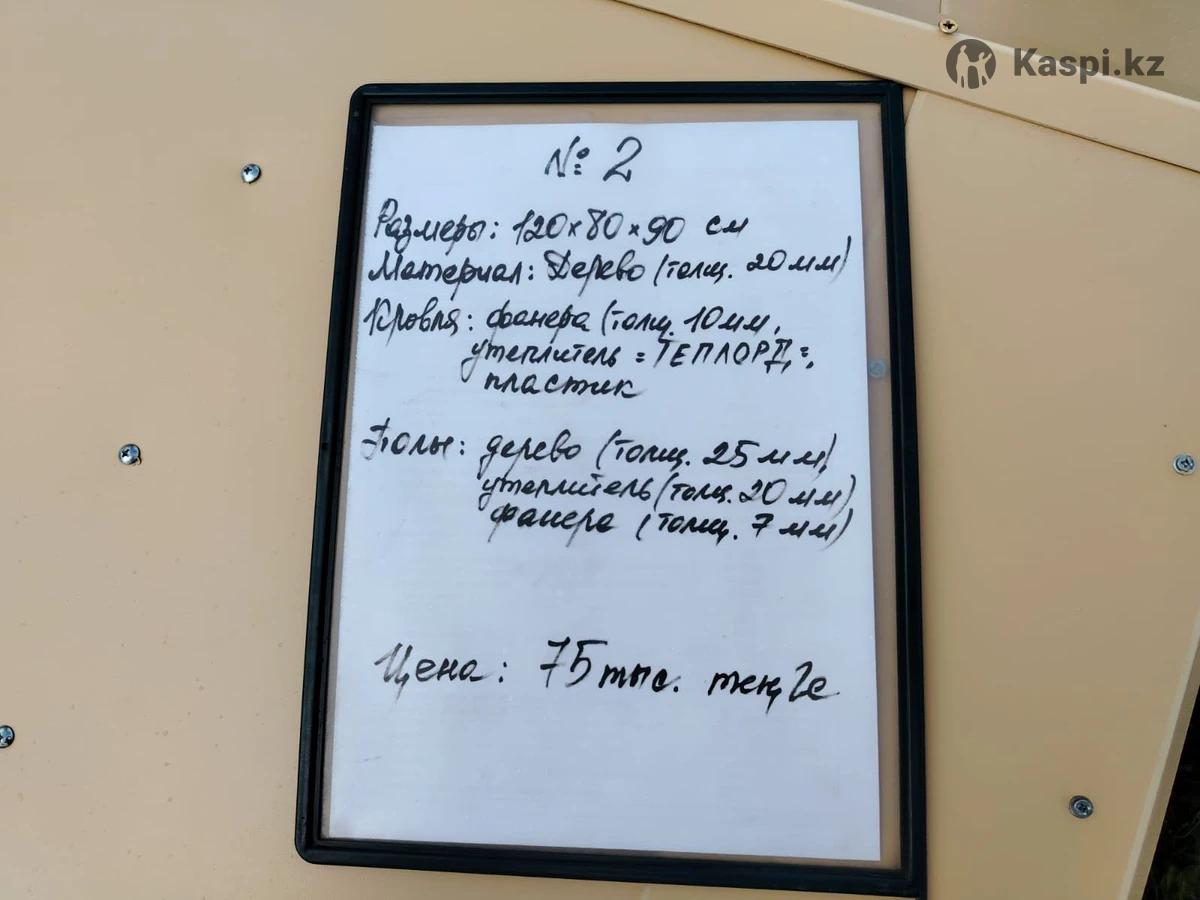 Kaspi.kz
№ 2
Размеры: 120×80×90 см
Материал: Дерево (толщ. 20 мм)
Кровля: фанера (толщ. 10 мм,
утеплитель = ТЕПЛОРД =,
пластик
Полы: дерево (толщ. 25 мм)
утеплитель (толщ. 20 мм)
фанера (толщ. 7 мм)
Цена: 75 тыс. теңге